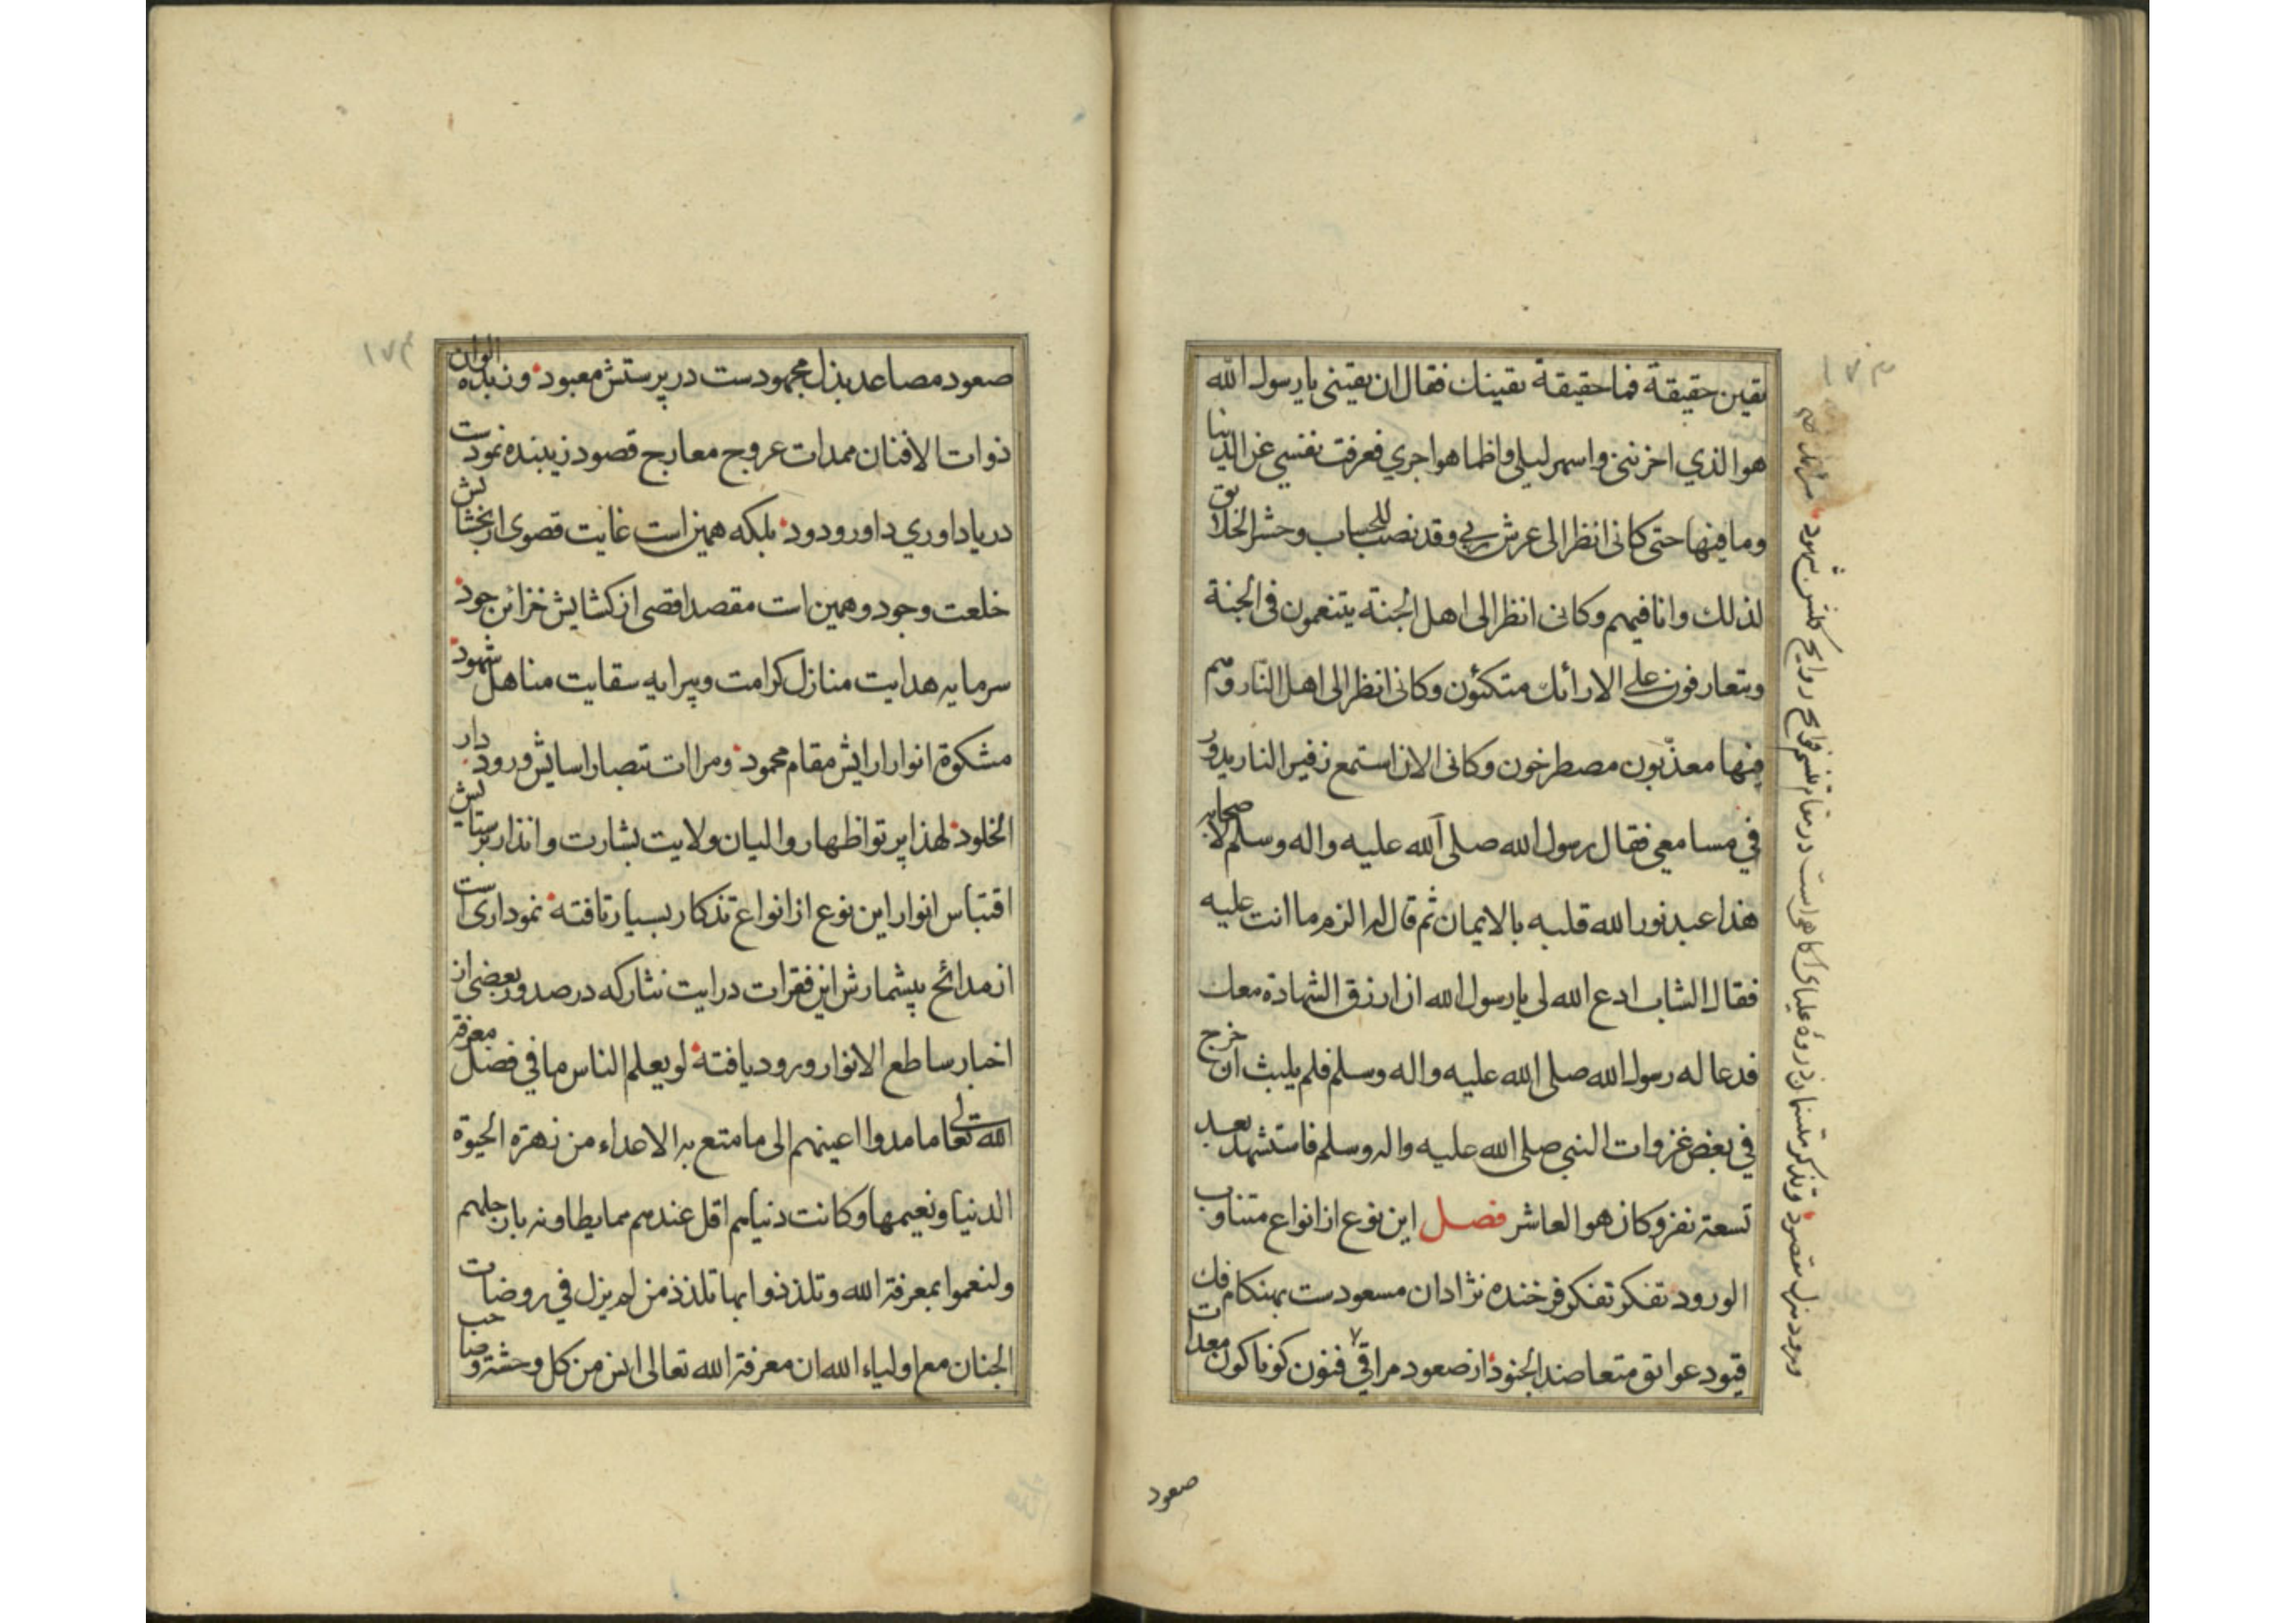 ١٧٣
يقين حقيقة فما حقيقة يقينك فقال ان يقيني يا رسول الله
هو الذي احزنني واسهر ليلي واظما هواجري فعزفت نفسي عن الدنيا
وما فيها حتى كاني انظر الى عرش ربي وقد نصب للحساب وحشر الخلائق
لذلك وانا فيهم وكاني انظر الى اهل الجنة يتنعمون في الجنة
ويتعارفون على الارائك متكئون وكاني انظر الى اهل النار وهم
فيها معذّبون مصطرخون وكاني الان استمع زفير النار يدور
في مسامعي فقال رسول الله صلى الله عليه واله وسلم لاصحابه
هذا عبد نور الله قلبه بالايمان ثم قال له الزم ما انت عليه
فقال الشاب ادع الله لي يا رسول الله ان ارزق الشهادة معك
فدعا له رسول الله صلى الله عليه واله وسلم فلم يلبث ان خرج
في بعض غزوات النبي صلى الله عليه واله وسلم فاستشهد بعد
تسعة نفر وكان هو العاشر فصل اين نوع از انواع متناوب
الورود تفكر تفكر فرخنده نژادان مسعودست بهنكام فك
قيود عوائق متعاضد الجنود از صعود مراقي فنون كوناكون معدات
صعود
كلشن شهود
ورود منزل مقصود وتذكر
١٧٤
صعود مصاعد بذل مجهودست در پرستش معبود وزبده الوان
ذوات الافنان ممدات عروج معارج قصود زيبنده نمودست
در ياداوري داور ودود بلكه همين است غايت قصوى از بخشايش
خلعت وجود وهمين است مقصد اقصى از كشايش خزائن جود
سرمايه هدايت منازل كرامت وپيرايه سقايت مناهل شهود
مشكوة انوار ارايش مقام محمود ومراات تبصار اسايش ورود دار
الخلود لهذا پرتو اظهار والبيان ولايت بشارت وانذار بر ستايش
اقتباس انوار اين نوع از انواع تذكار بسيار تافته نموداری است
از مدائح بيشمارش اين فقرات درايت نثار كه در صدور بعضى از
اخبار ساطع الانوار ورود يافته لو يعلم الناس ما في فضل معرفة
الله تعالى ما مدوا اعينهم الى ما متع به الاعداء من زهرة الحيوة
الدنيا ونعيمها وكانت دنياهم اقل عندهم مما يطاونه بارجلهم
ولنعموا بمعرفة الله وتلذذوا بها تلذذ من لم يزل في روضات
الجنان مع اولياء الله ان معرفة الله تعالى انس من كل وحشة وصاحب